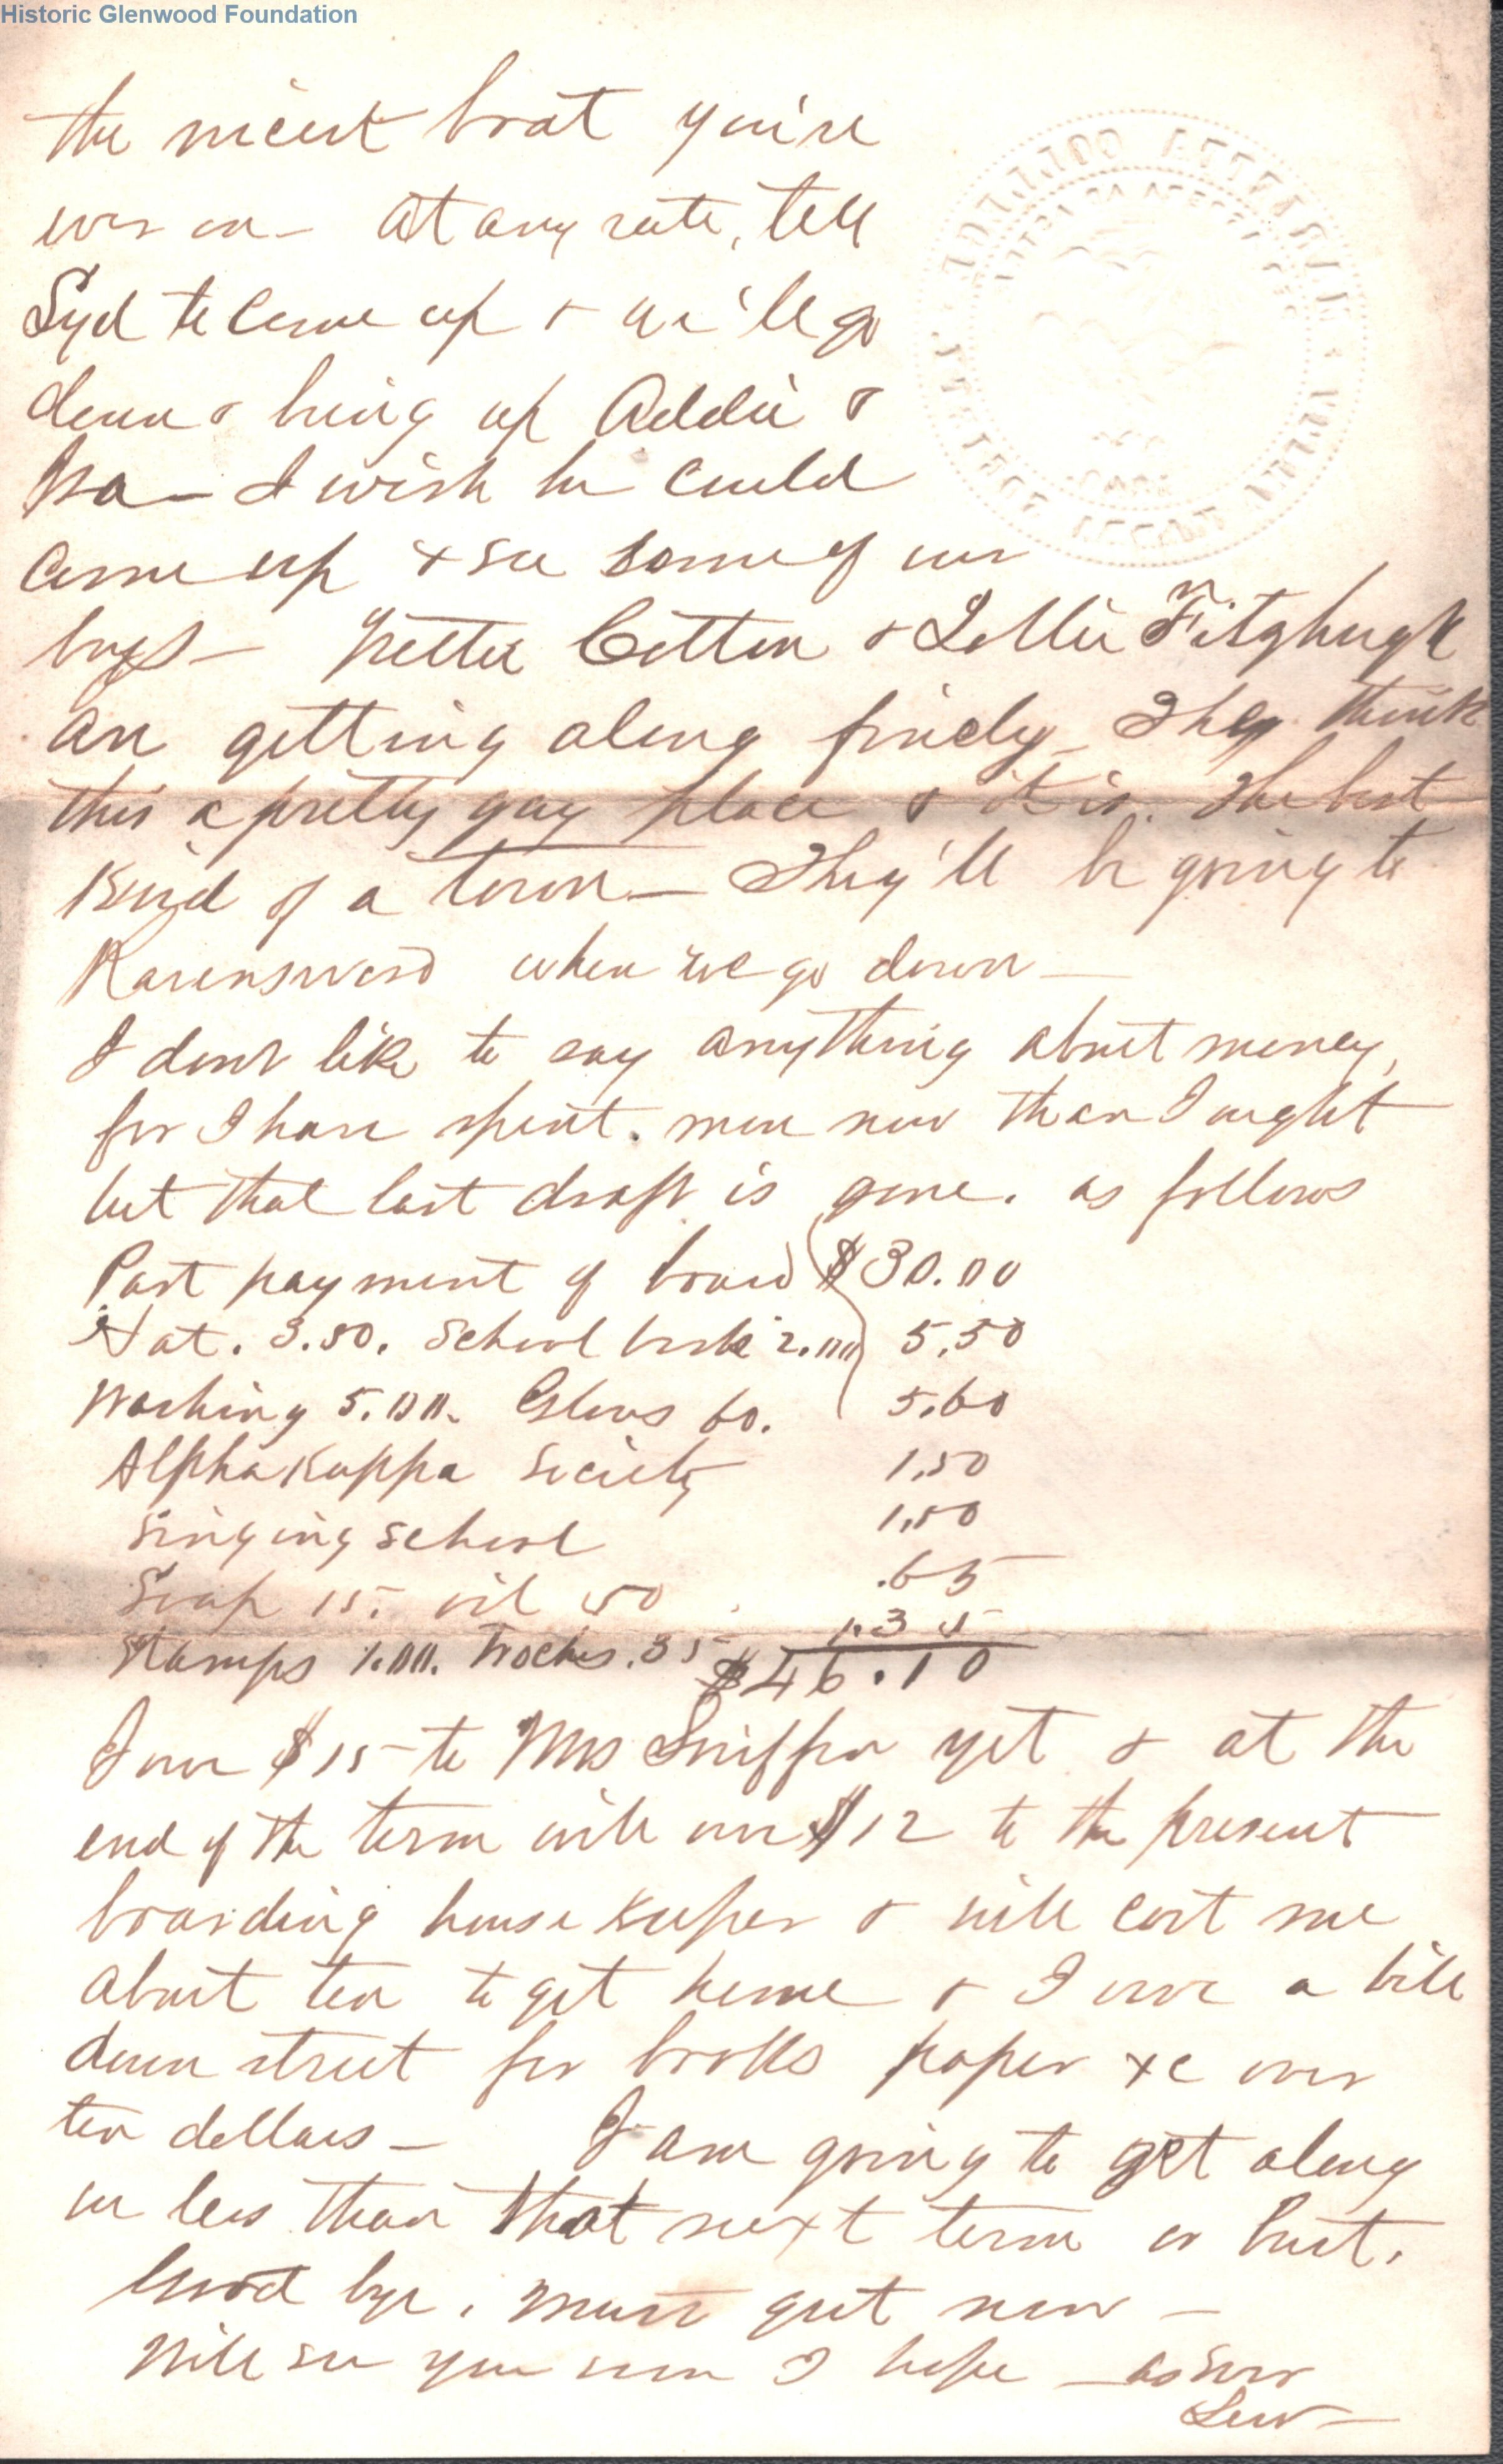 Historic Glenwood Foundation
the nicest boat you're
ever on - At any rate, tell
Syd to come up & we'll go
down & bring up Addie &
Ma - I wish he could
come up & see some of our
boys - Cotton & Lollie Fitzhugh
are getting along finely - They think
this a pretty gay place & it is. The best
kind of a town - They'll be going to
Ravenswood when we go down -
I don't like to say anything about money,
for I have spent more now than I ought
but that last draft is gone. as follows
Part payment of board $30.00
Hat. 3.50. School books 2.00 5.50
Washing 5.00. Gloves 60. 5.60
Alpha Kappa Society 1.50
Singing School 1.50
Soap 15. oil 50 .65
Stamps 1.00. Troches .35 1.35
$46.10
I owe $15 to Mrs yet & at the
end of the term will owe $12 to the present
boarding house keeper & will cost me
about ten to get home & I owe a bill
down street for books paper &c over
ten dollars - I am going to get along
on less than that next term or bust.
Good bye. Must quit now -
Will see you soon I hope - as ever
Lew -